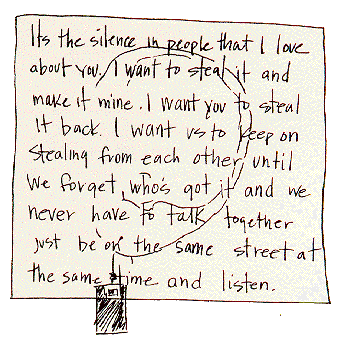 Its the silence in people that I love
about you. I want to steal it and
make it mine. I want you to steal
it back. I want us to keep on
stealing from each other until
we forget who's got it and we
never have to talk together
just be on the same street at
the same time and listen.